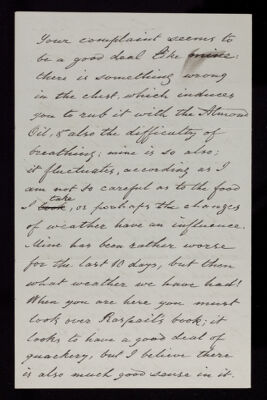 Your complaint seems to
be a good deal like mine:
there is something wrong
in the chest, which induces
you to rub it with the Almond
Oil, & also the difficulty of
breathing; mine is so also;
it fluctuates, according as I
am not so careful as to the food
I took take, or perhaps the changes
of weather have an influence.
Mine has been rather worse
for the last 10 days, but then
what weather we have had!
When you are here you must
look over Raspail's book; it
looks to have a good deal of
quackery, but I believe there
is also much good sense in it.